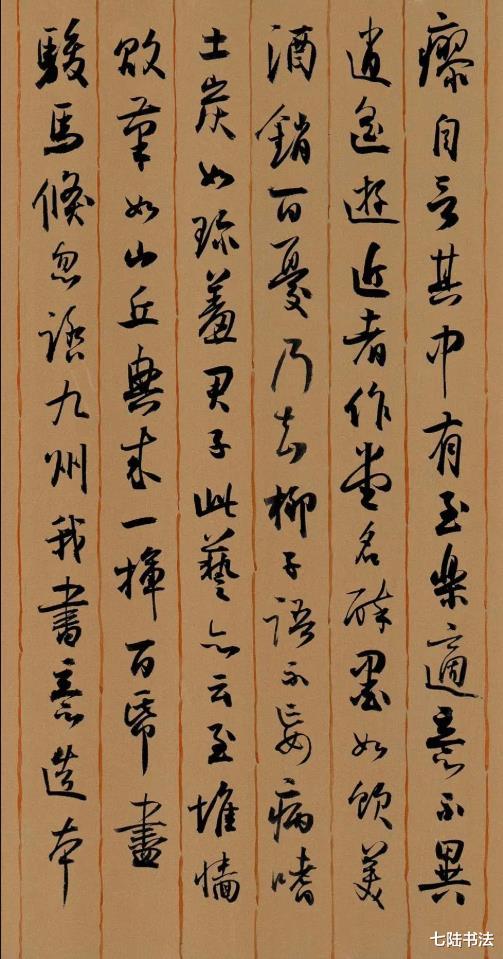 瘳自言其中有至樂適意不異
逍遙遊近者作堂名醉墨如飲美
酒銷百憂乃知柳子語不妄病嗜
土炭如珍羞君于此藝亦云至堆牆
敗筆如山丘興來一揮百帋盡
駿馬倏忽踏九州我書意造本
七陆书法